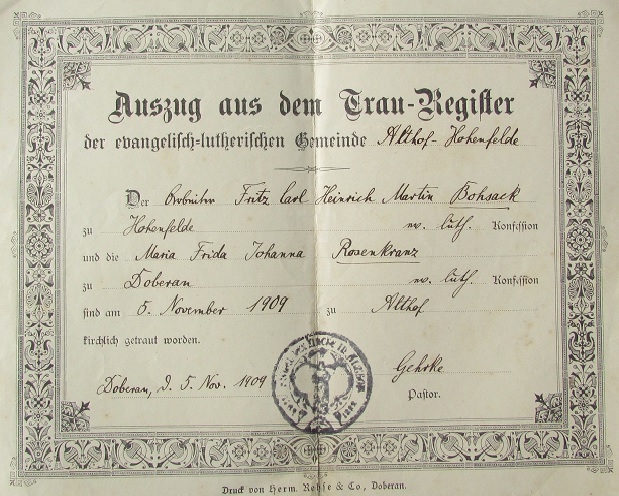 Auszug aus dem Trau-Register
der evangelisch-lutherischen Gemeinde Althof-Hohenfelde
Der Arbeiter Fritz Carl Heinrich Martin Bohsack
zu Hohenfelde ev. luth. Konfession
und die Maria Frida Johanna Rosenkranz
zu Doberan ev. luth. Konfession
sind am 5. November 1909 zu Althof
kirchlich getraut worden.
Doberan, d. 5. Nov. 1909 Gehrke
Pastor.
Druck von Herm. Rehse & Co., Doberan.